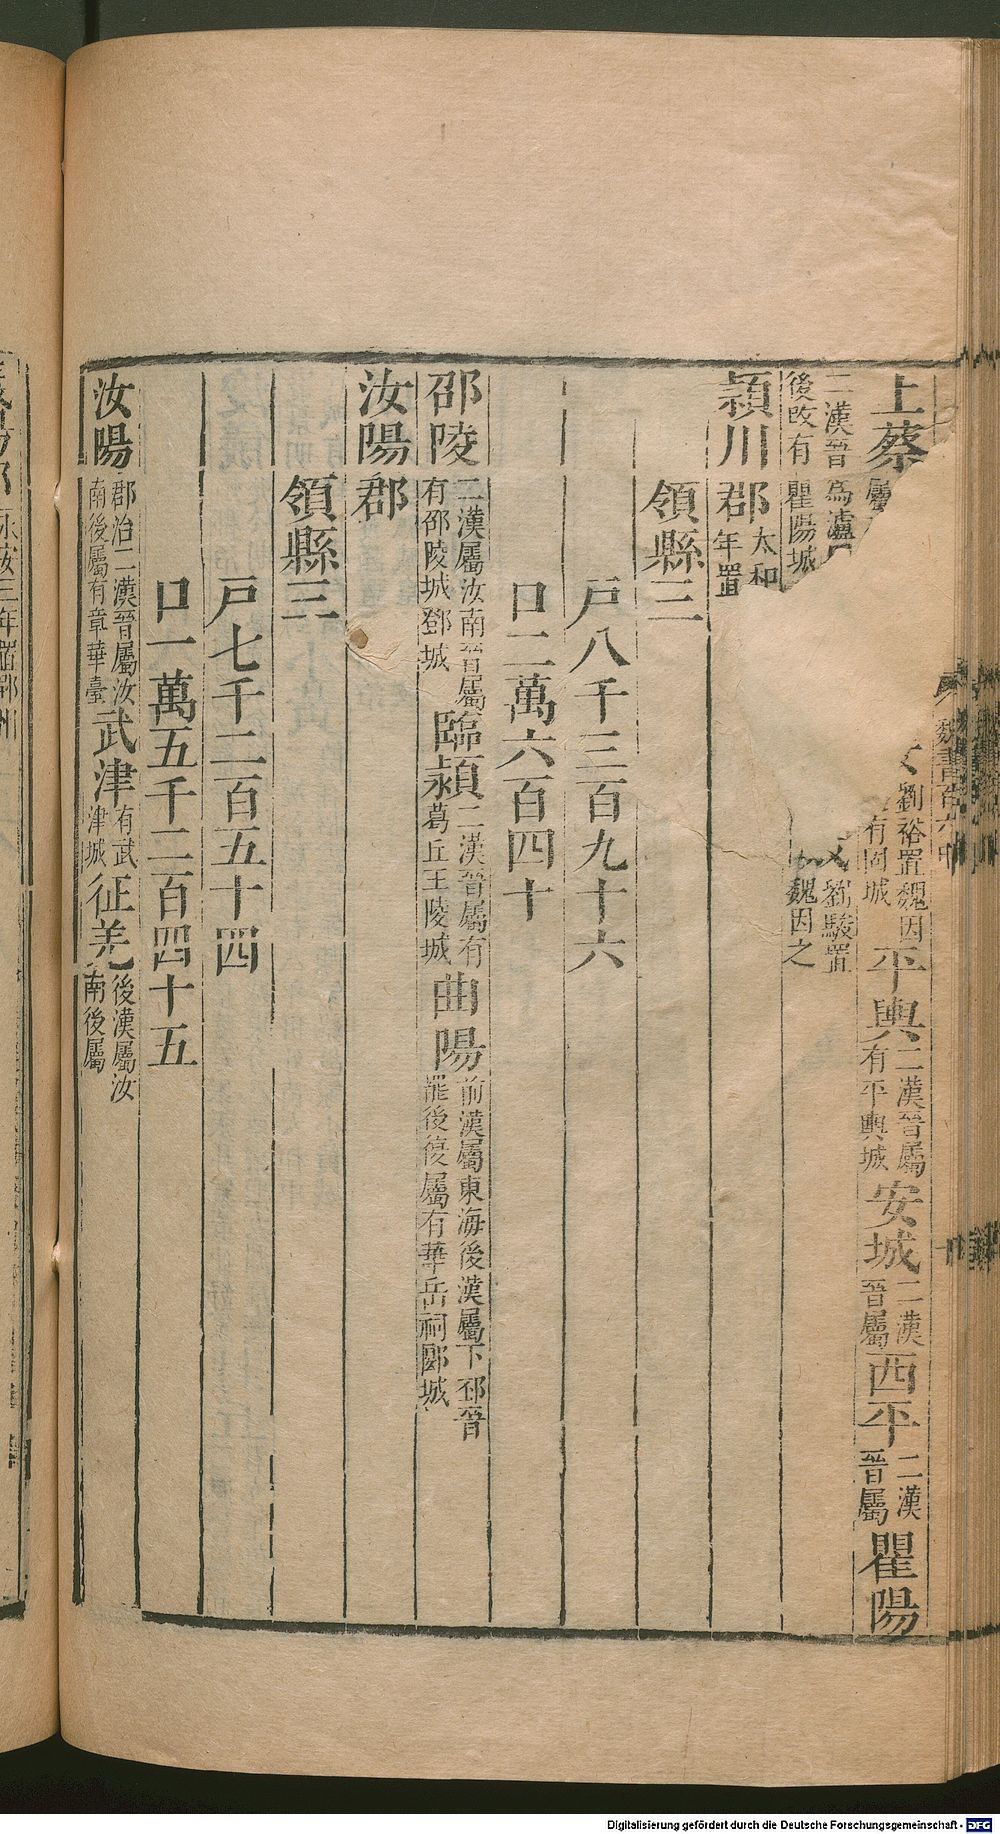 上蔡屬劉裕置魏因有固城平輿二漢晉屬有平輿城安城二漢晉屬西平二漢晉屬瞿陽
二漢晉爲灈劉駿置魏因之後改有瞿陽城
潁川郡太和年置
領縣三
戸八千三百九十六
口二萬六百四十
邵陵二漢屬汝南晉屬有邵陵城鄧城臨潁二漢晉屬有葛丘王陵城曲陽前漢屬東海後漢屬下邳晉罷後復屬有華岳祠郾城
汝陽郡
領縣三
戸七千二百五十四
口一萬五千二百四十五
汝陽郡治二漢晉屬汝南後屬有章華臺武津有武津城征羌後漢屬汝南後屬
魏書百六中
永安三年置郢州
Digitalisierung gefördert durch die Deutsche Forschungsgemeinschaft - DFG